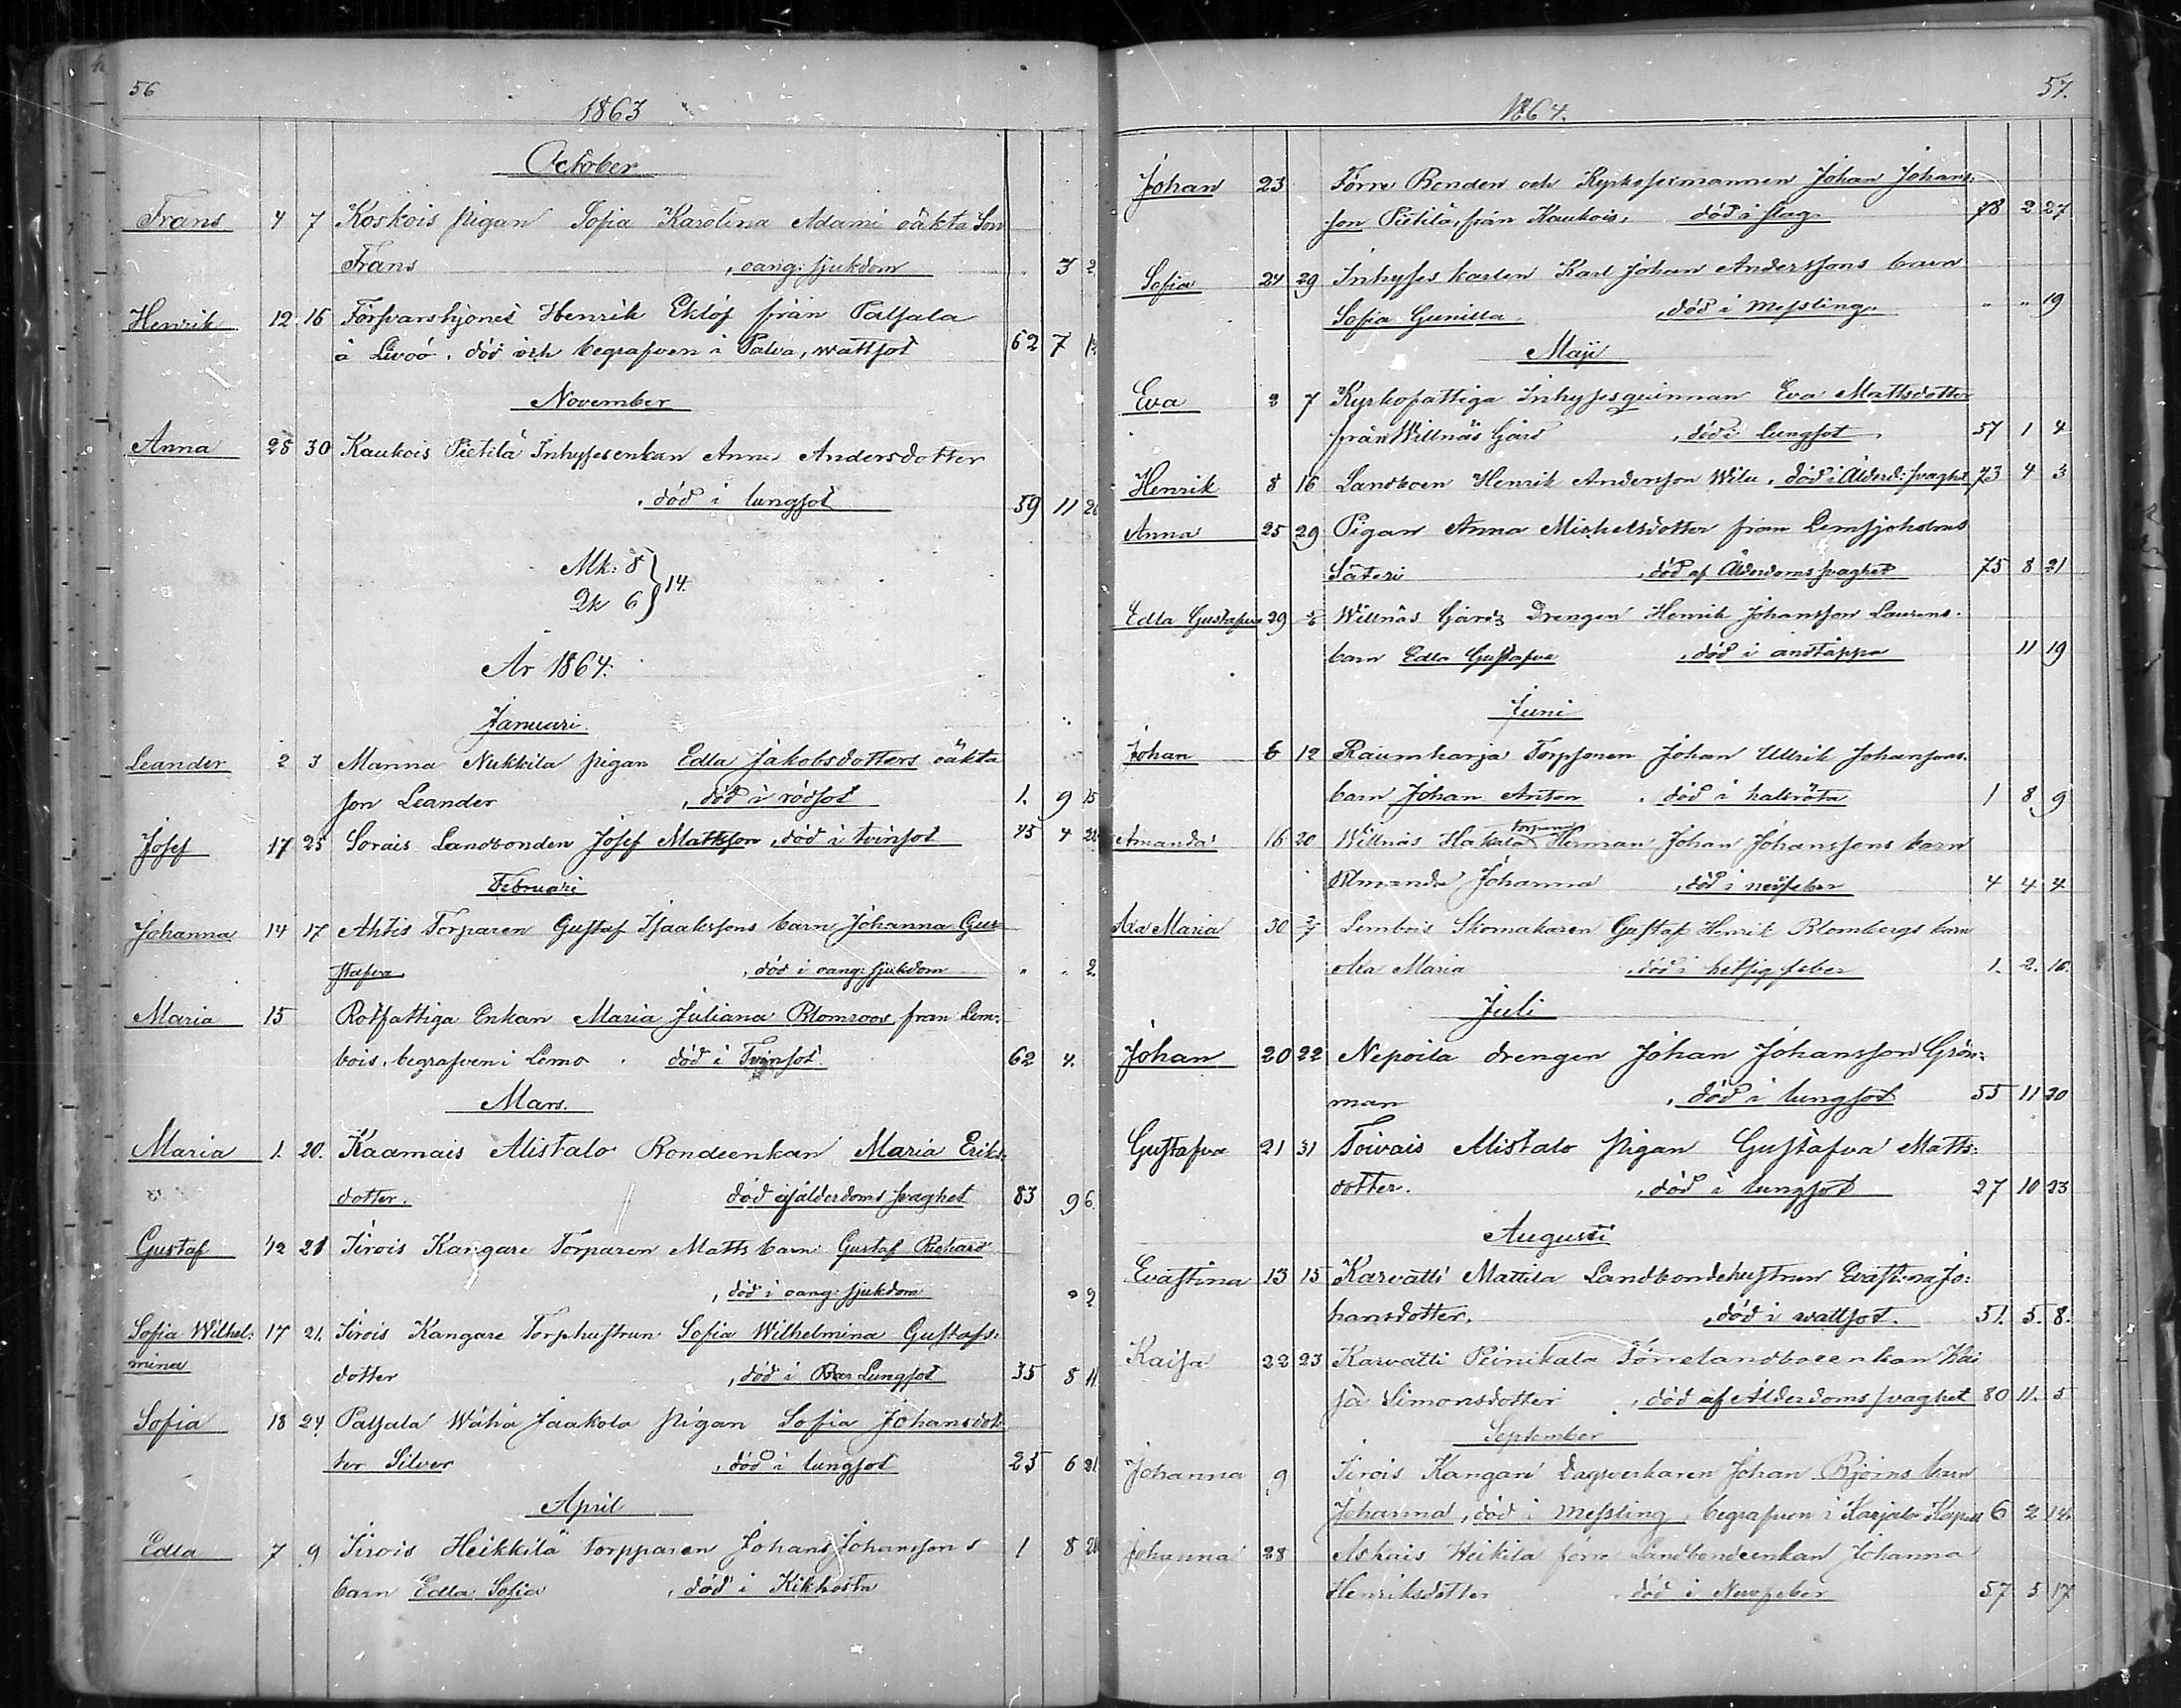 56
1863
October
Frans 4 7 Koskois pigan Sofia Karolina Adami oäkta Son
Frans , oang: sjukdom . 3 2
Henrik 12 16 Försvarshjonet Henrik Eklöf från Patjala
å Livoö. död och begrafven i Palva, wattsot 62 7
November
Anna 25 30 Kaukois Pietilä Inhysesenkan Anna Andersdotter
, död i lungsot 59 11
Mk: 8
Qk 6 } 14.
År 1864.
Januari
Leander 2 3 Manna Nukkila pigan Edla Jakobsdotters oäkta
son Leander , död i rödsot 1. 9 15
Josef 17 25 Sorais Landbonden Josef Mattsson, död i tvinsot 45 4
Februari
Johanna 14 17 Ahtis Torparen Gustaf Isaakssons barn Johanna Gus-
stafva , död i oang: sjukdom " " 2
Maria 15 Rotfattiga Enkan Maria Juliana Blomroos från Lem-
bois, begrafven i Lemo . död i Tvinsot 62 4.
Mars.
Maria 1. 20. Kaamais Alistalo Bondeenkan Maria Eriks-
dotter. död af ålderdoms svaghet 83 9 6.
Gustaf 12 21 Iirois Kangare Torparen Matts barn Gustaf Richard
, död i oang: sjukdom " 2
Sofia Wilhel- 17 21. Iirois Kangare Torphustrun Sofia Wilhelmina Gustafs-
mina dotter , död i Lungsot 35 8 11.
Sofia 18 24 Patjala Wähä Jaakola pigan Sofia Johansdot-
ter Silver , död i lungsot 25 6 21
April
Edla 7 9 Iirois Heikkilä torpparen Johans Johanssons 1 8
barn Edla Sofia , död i Kikhosta
57.
1864.
Johan 23 Förre Bonden och Kyrkosexmannen Johan Johans-
son Pietilä, från Kaukois, död i slag 78 2 27
Sofia 24 29 Inhyses karlen Karl Johan Anderssons barn
Sofia Gunilla , död i Messling. " " 19
Maji
Eva 2 7 Kyrkofattiga Inhysesquinnan Eva Mattsdotter
från Willnäs Gård , död i lungsot 57 1 4
Henrik 8 16 Landboen Henrik Andersson Wilu, död i Ålderd: svaghet 73 4 3
Anna 25 29 Pigan Anna Michelsdotter från Lemsjöholms
Säteri , död af Ålderdomssvaghet 75 8 21
Edla Gustafva 29 Willnäs Gårds Drengen Henrik Johansson Laurens
barn Edla Gustafva , död i andtäppa 11 19
Juni
Johan 6 12 Raumkarja Torpsonen Johan Ullrik Johanssons
barn Johan Anton . död i halsröta 1 8 9
Amanda 16 20 Willnäs Hakala torparen Herman Johan Johanssons barn
Amanda Johanna , död i nervfeber 4 4 4
Alexa Maria 30 2/7 Lembois Skomakaren Gustaf Henrik Blombergs barn
Maria , död i hetsig feber 1. 2. 10.
Juli
Johan 20 22 Nepoila drengen Johan Johansson Grön-
man , död i lungsot 55 11 20
Gustafva 21 31 Toivais Alistalo pigan Gustafva Matts-
dotter. , död i lungsot 27 10 23
Augusti
Evastina 13 15 Karvatti Mattila Landbondehustrun Evastina Jo-
hansdotter. , död i wattsot. 51. 5. 8.
Kaisa 22 23 Karvatti Peinikala Förrelandboeenkan Kai
sa Simonsdotter , död af Ålderdomssvaghet 80 11. 5
September
Johanna 9 Iirois Kangari Dagsverkaren Johan Björns barn
Johanna, död i Messling, begrafven i Karjala Kapell 6 2 14.
Johanna 28 Askais Heikilä förre Landbondeenkan Johanna
Henriksdotter . död i Nervfeber 57 5 17